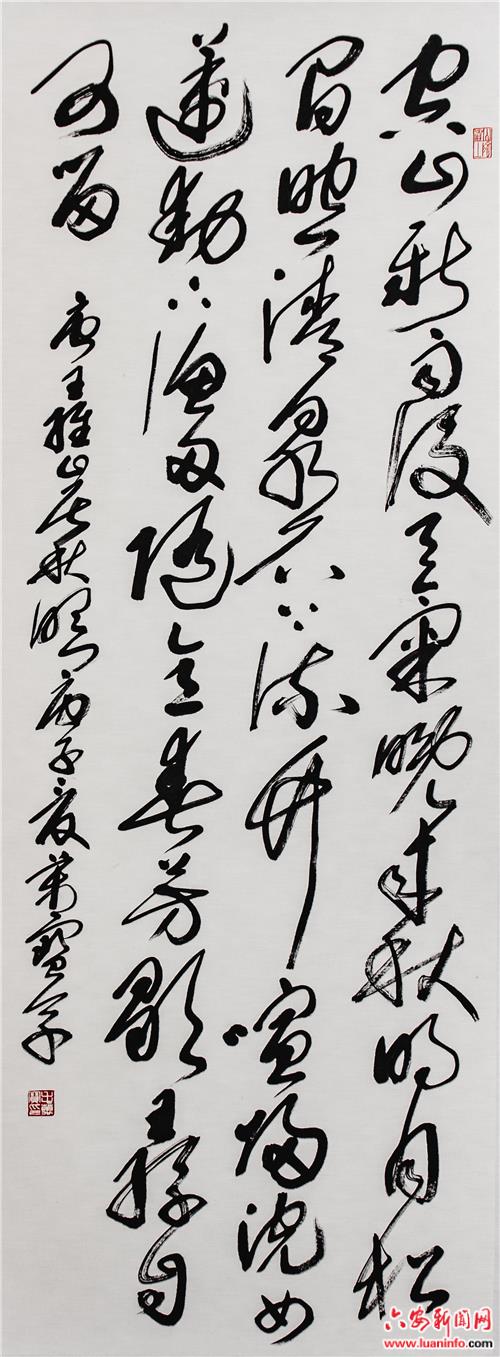 空山新雨後天氣晚来秋明月松
間照清泉石上流竹喧歸浣女
蓮動下漁舟随意春芳歇王孫自
可留
唐王維山居秋暝 子夏
六安新闻网
www.luaninfo.com